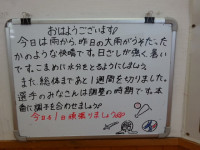 おはようございます!
今日は雨から、昨日の大雨がうそだった
かのような快晴です。日ざしが強く、暑い
です。こまめに水分をとるようにしましょう。
また、総体まであと1週間を切りました。
選手のみなさんは調整の時期です。本
番に調子を合わせましょう!
今日も1日頑張りましょう